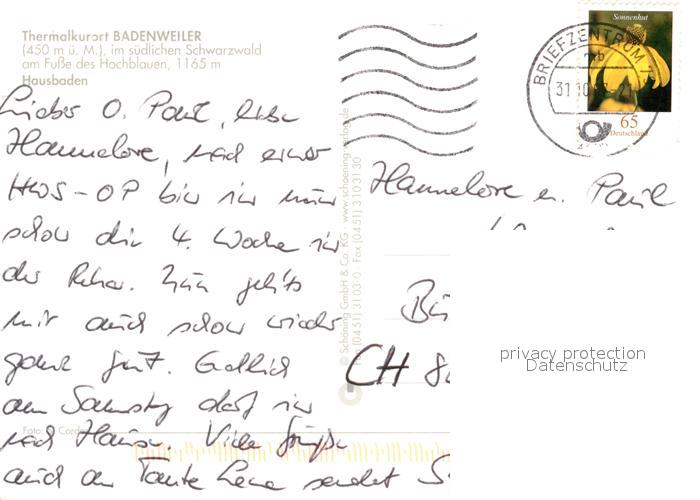 Thermalkurort BADENWEILER
(450 m ü. M.), im südlichen Schwarzwald
am Fuße des Hochblauen, 1165 m
Hausbaden
Lieber O. Paul, liebe
Hannelore, nach einer
HWS-OP bin ich nun
schon die 4. Woche in
der Reha. Nun geht's
mir auch schon wieder
ganz gut. Endlich
am Samstag darf ich
nach Hause. Viele Grüße
auch an Tante Lene sendet
© Schöning GmbH & Co. KG · www.schoening-verlag.de
(0451) 31 03-0 · Fax (0451) 3103130
Sonnenhut
65
Deutschland
BRIEFZENTRUM
31.10
Hannelore u. Paul
CH
privacy protection
Datenschutz